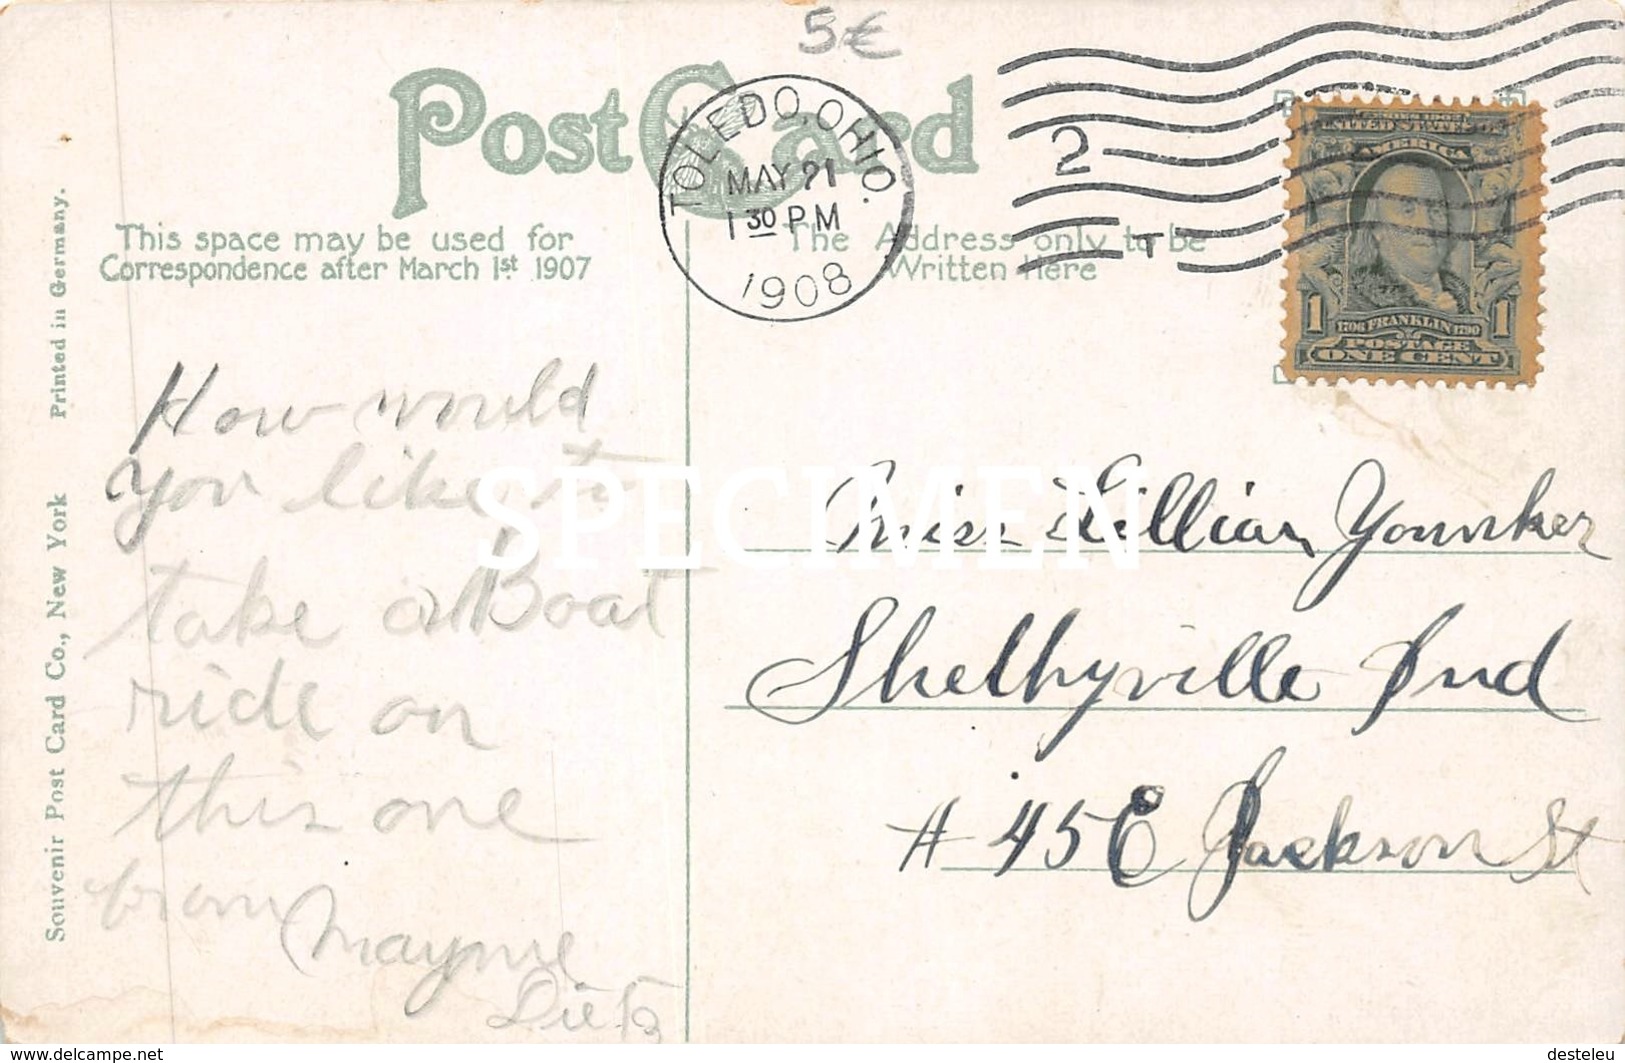 5€
Post Card
This space may be used for
Correspondence after March 1st 1907
The Address only to be
Written Here
TOLEDO, OHIO.
MAY 21
1 30 PM
1908
2
T
UNITED STATES OF
AMERICA
1 1
1706 FRANKLIN 1790
POSTAGE
ONE CENT
Souvenir Post Card Co., New York Printed in Germany.
How would
you like to
take a Boat
ride on
this one
from Mayme
Dietz
Miss Lillian Younker
Shelbyville Ind
# 45 E Jackson St
SPECIMEN
www.delcampe.net
desteleu